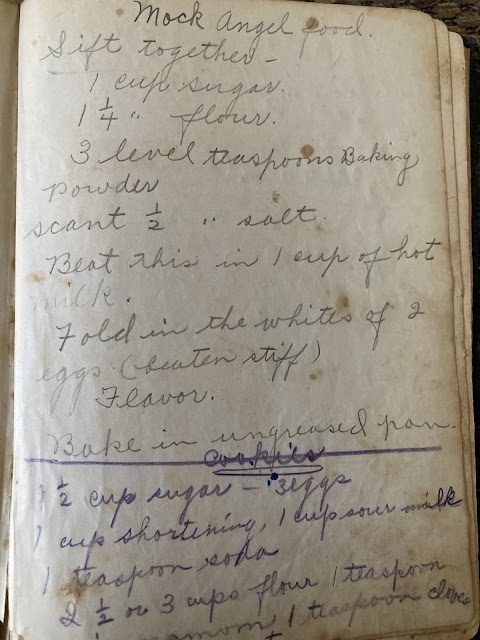 Mock Angel food.
Sift together -
1 cup sugar.
1 1/4 " flour.
3 level teaspoons Baking
powder
scant 1/2 " salt.
Beat this in 1 cup of hot
milk.
Fold in the whites of 2
eggs (beaten stiff)
Flavor.
Bake in ungreased pan.
Cookies
1 1/2 cup sugar - 3 eggs
1 cup shortening, 1 cup sour milk
1 teaspoon soda
2 1/2 or 3 cups flour 1 teaspoon
1 teaspoon cloves